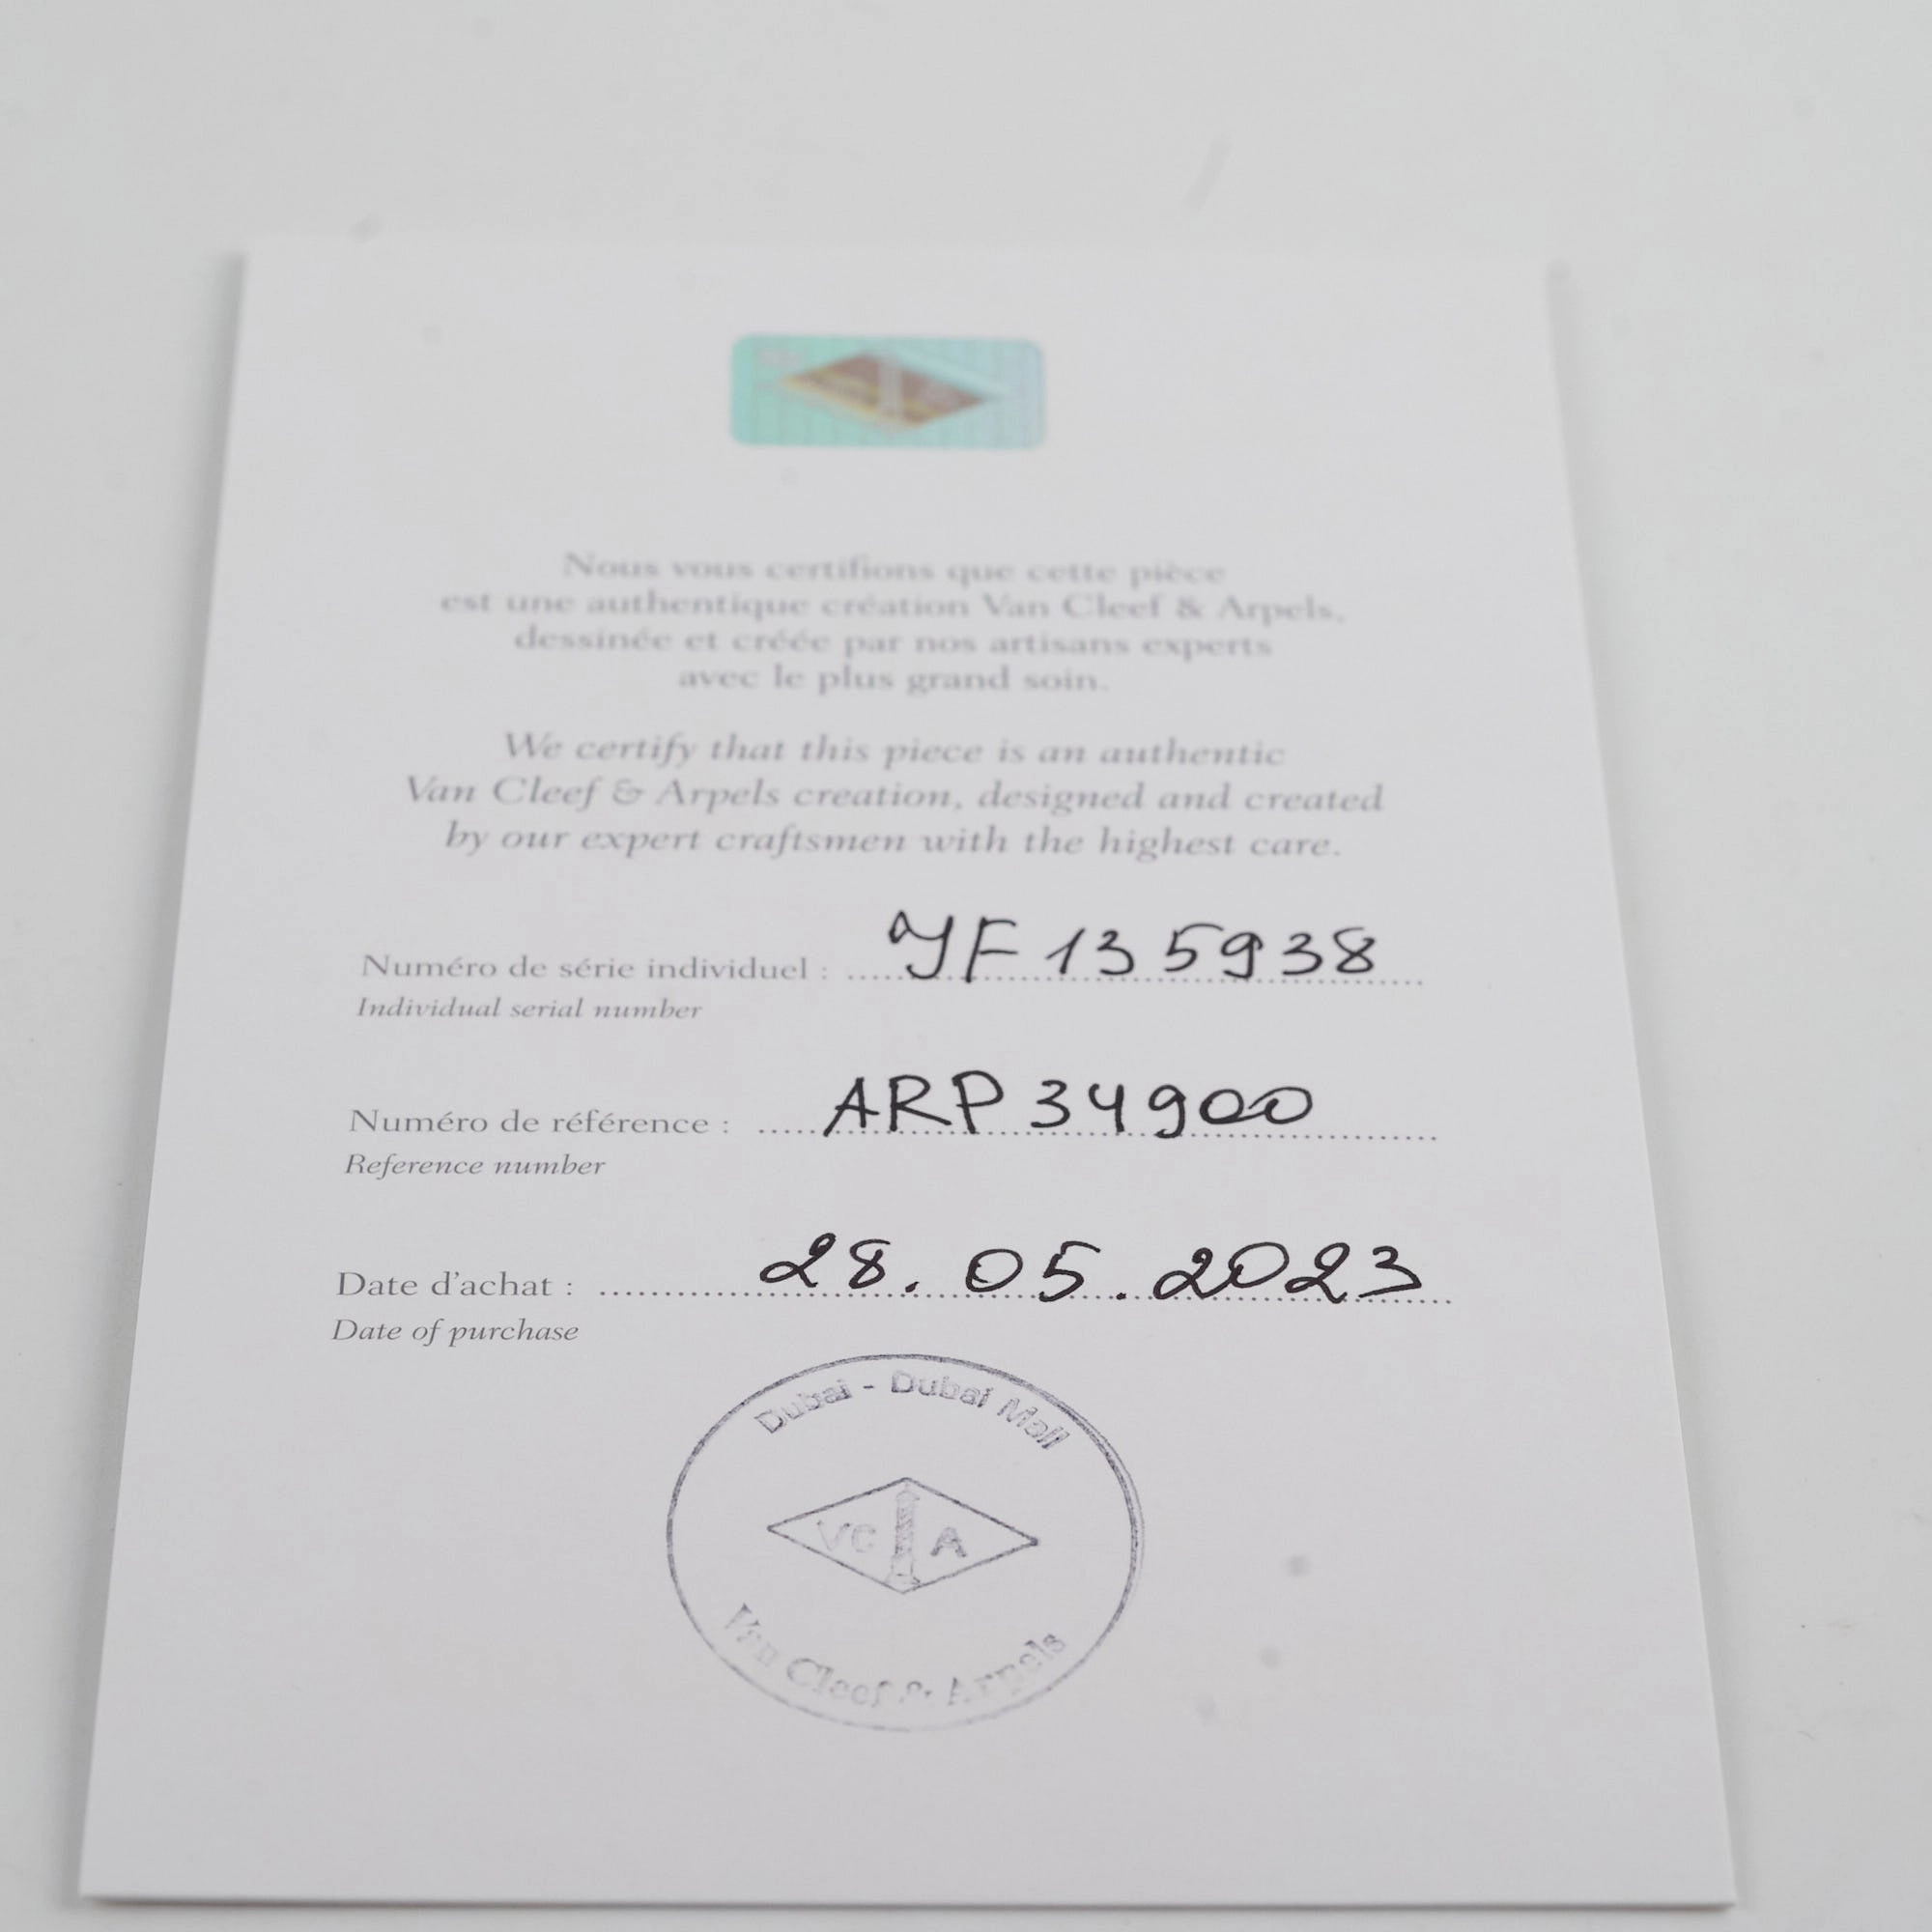 Nous vous certifions que cette pièce
est une authentique création Van Cleef & Arpels,
dessinée et créée par nos artisans experts
avec le plus grand soin.
We certify that this piece is an authentic
Van Cleef & Arpels creation, designed and created
by our expert craftsmen with the highest care.
Numéro de série individuel : JF135938
Individual serial number
Numéro de référence : ARP34900
Reference number
Date d'achat : 28.05.2023
Date of purchase
Dubai - Dubai Mall
VC A
Van Cleef & Arpels